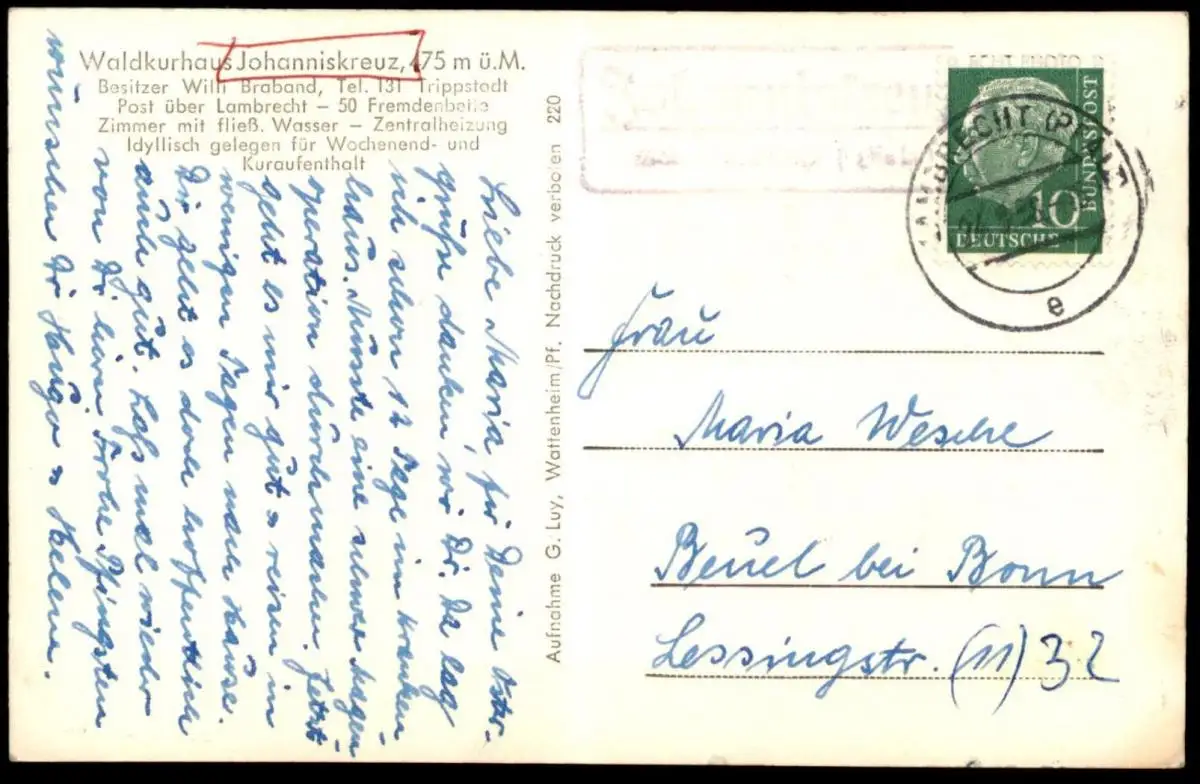 Waldkurhaus Johanniskreuz, 475 m ü.M.
Besitzer Willi Braband, Tel. 131 Trippstadt
Post über Lambrecht – 50 Fremdenbette
Zimmer mit fließ. Wasser – Zentralheizung
Idyllisch gelegen für Wochenend- und
Kuraufenthalt
Liebe Maria, für Deine Oster-
grüße danken wir Dir. Da lag
ich schon 12 Tage im Kranken
haus. Musste eine schwere Magen
operation durchmachen. Jetzt
geht es mir gut & reisen in
wenigen Tagen nach Hause.
Dir geht es doch hoffentlich
auch gut. Lass mal wieder
von Dir hören. Frohe Pfingsten
wünschen Dir Hugo & Helene.
Aufnahme G. Luy, Wattenheim/Pf. Nachdruck verboten 220
LAMBRECHT (PFALZ)
e
10
DEUTSCHE
BUNDESPOST
Frau
Maria Wesche
Beuel bei Bonn
Lessingstr. (11) 32